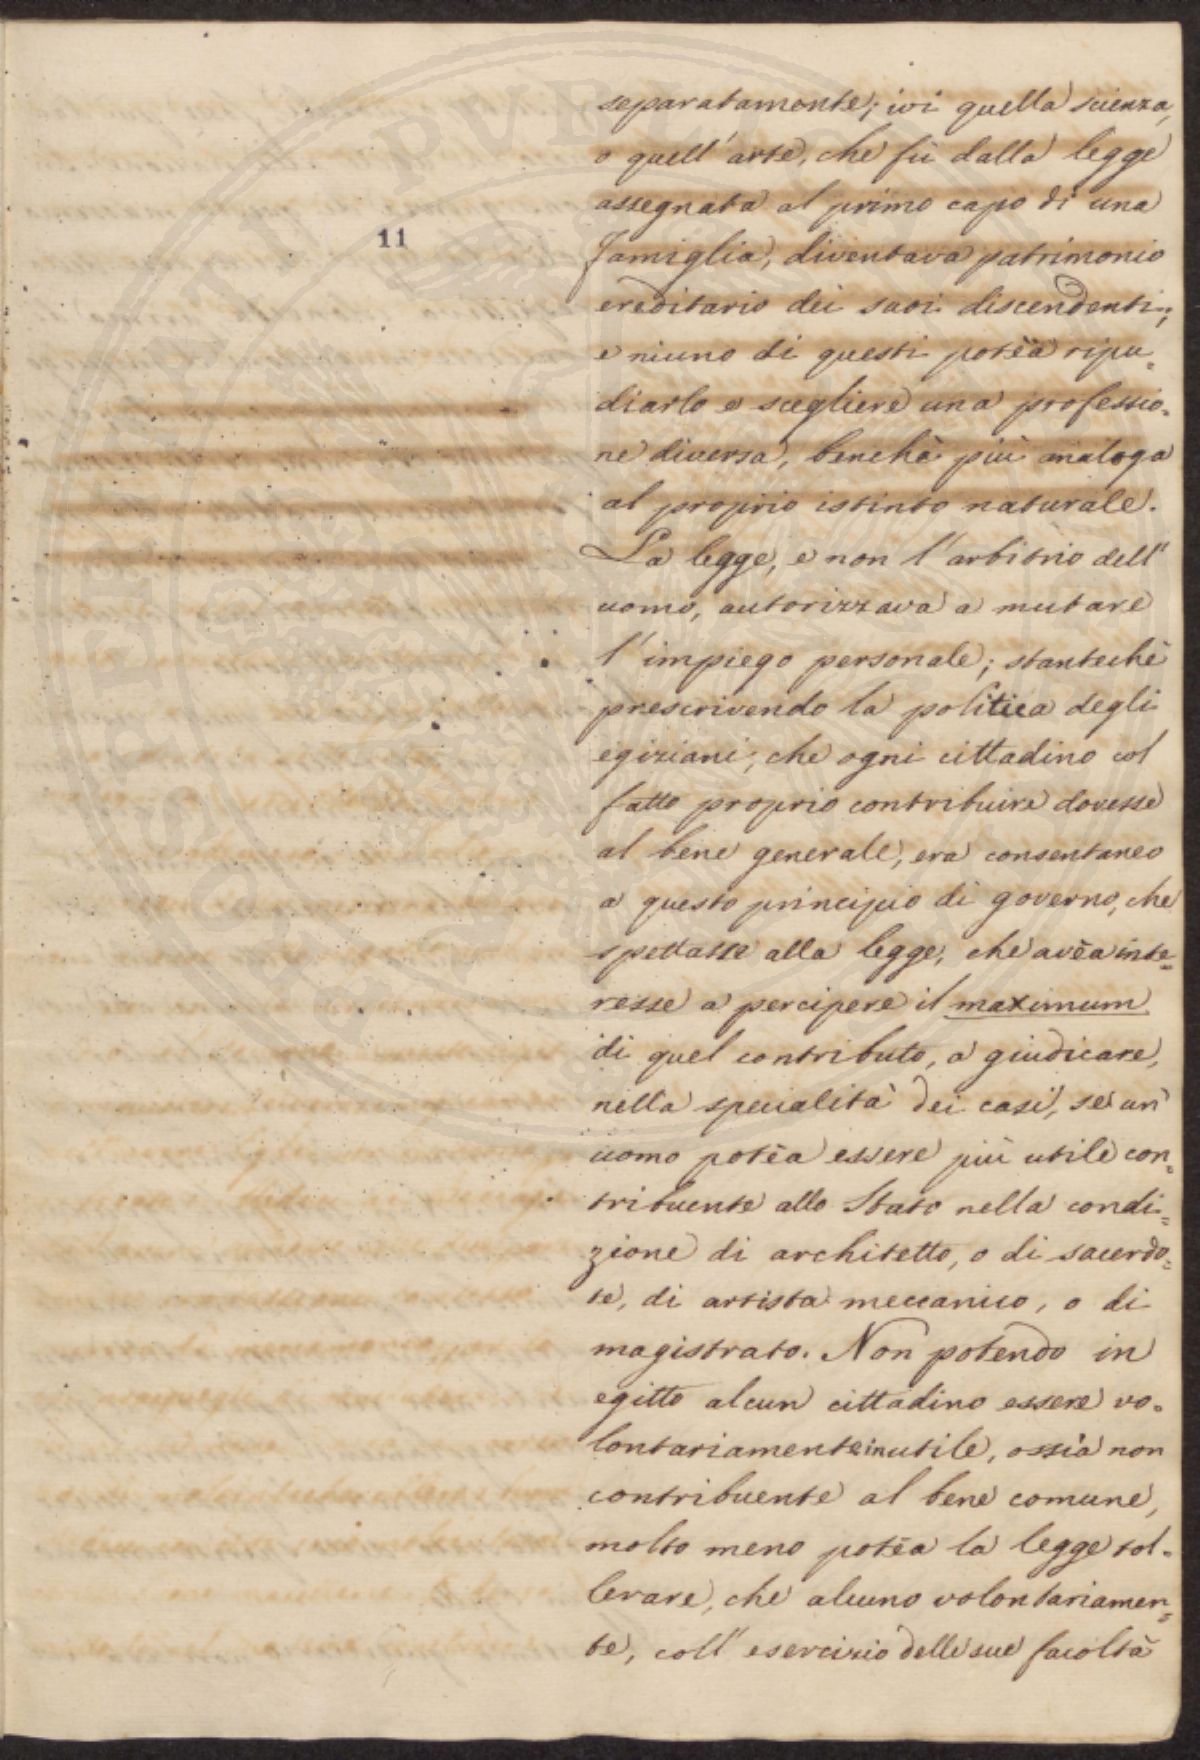 11
separatamente; ivi quella scienza,
o quell'arte, che fù dalla legge
assegnata al primo capo di una
famiglia, diventava patrimonio
ereditario dei suoi discendenti;
e niuno di questi potèa ripu=
diarlo e scegliere una professio=
ne diversa, benchè più analoga
al proprio istinto naturale.
La legge, e non l'arbitrio dell'
uomo, autorizzava a mutare
l'impiego personale; stantechè
prescrivendo la politica degli
egiziani, che ogni cittadino col
fatto proprio contribuire dovesse
al bene generale, era consentaneo
a questo principio di governo, che
spettasse alla legge, che avèa inte=
resse a percipere il maximum
di quel contributo, a giudicare,
nella specialità dei casi, se un
uomo potèa essere più utile con=
tribuente allo Stato nella condi=
zione di architetto, o di sacerdo=
te, di artista meccanico, o di
magistrato. Non potendo in
egitto alcun cittadino essere vo=
lontariamente inutile, ossia non
contribuente al bene comune,
molto meno potèa la legge tol=
lerare, che alcuno volontariamen=
te, coll'esercizio delle sue facoltà